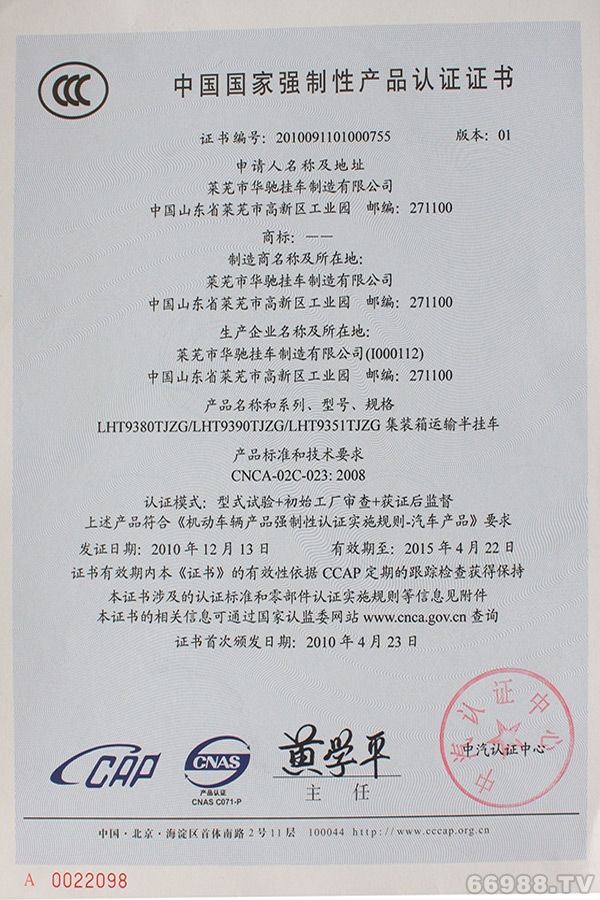 中国国家强制性产品认证证书
证书编号：2010091101000755 版本：01
申请人名称及地址
莱芜市华驰挂车制造有限公司
中国山东省莱芜市高新区工业园 邮编：271100
商标：——
制造商名称及所在地：
莱芜市华驰挂车制造有限公司
中国山东省莱芜市高新区工业园 邮编：271100
生产企业名称及所在地：
莱芜市华驰挂车制造有限公司(I000112)
中国山东省莱芜市高新区工业园 邮编：271100
产品名称和系列、型号、规格
LHT9380TJZG/LHT9390TJZG/LHT9351TJZG 集装箱运输半挂车
产品标准和技术要求
CNCA-02C-023: 2008
认证模式：型式试验+初始工厂审查+获证后监督
上述产品符合《机动车辆产品强制性认证实施规则-汽车产品》要求
发证日期：2010 年 12 月 13 日 有效期至：2015 年 4 月 22 日
证书有效期内本《证书》的有效性依据 CCAP 定期的跟踪检查获得保持
本证书涉及的认证标准和零部件认证实施规则等信息见附件
本证书的相关信息可通过国家认监委网站 www.cnca.gov.cn 查询
证书首次颁发日期：2010 年 4 月 23 日
CCAP
CNAS
产品认证
CNAS C071-P
黄学平
主 任
中汽认证中心
中汽认证中心
中国·北京·海淀区首体南路2号11层 100044 http://www.cccap.org.cn
A 0022098
66988.TV